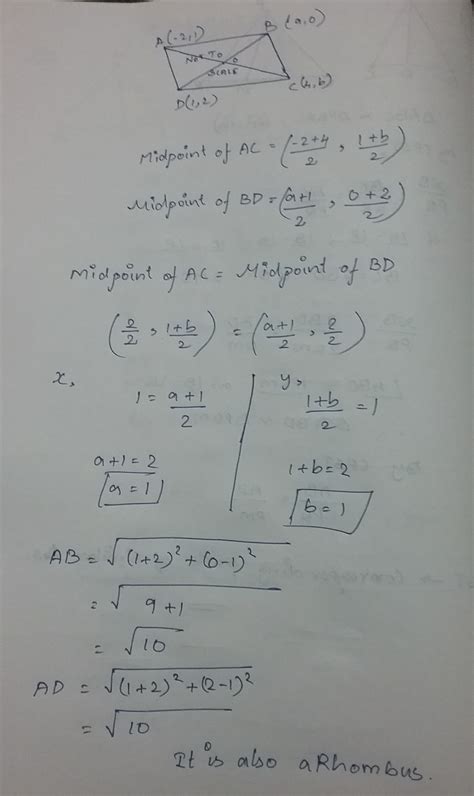 A(-2,1)
B(a,0)
NOT TO
SCALE
O
D(1,2)
C(4,b)
Midpoint of AC = (-2+4/2 , 1+b/2)
Midpoint of BD = (a+1/2 , 0+2/2)
Midpoint of AC = Midpoint of BD
(2/2 , 1+b/2) = (a+1/2 , 2/2)
x,
y,
1 = a+1/2
1+b/2 = 1
a+1 = 2
1+b = 2
a = 1
b = 1
AB = √(1+2)² + (0-1)²
= √9+1
= √10
AD = √(1+2)² + (2-1)²
= √10
It is also a Rhombus.